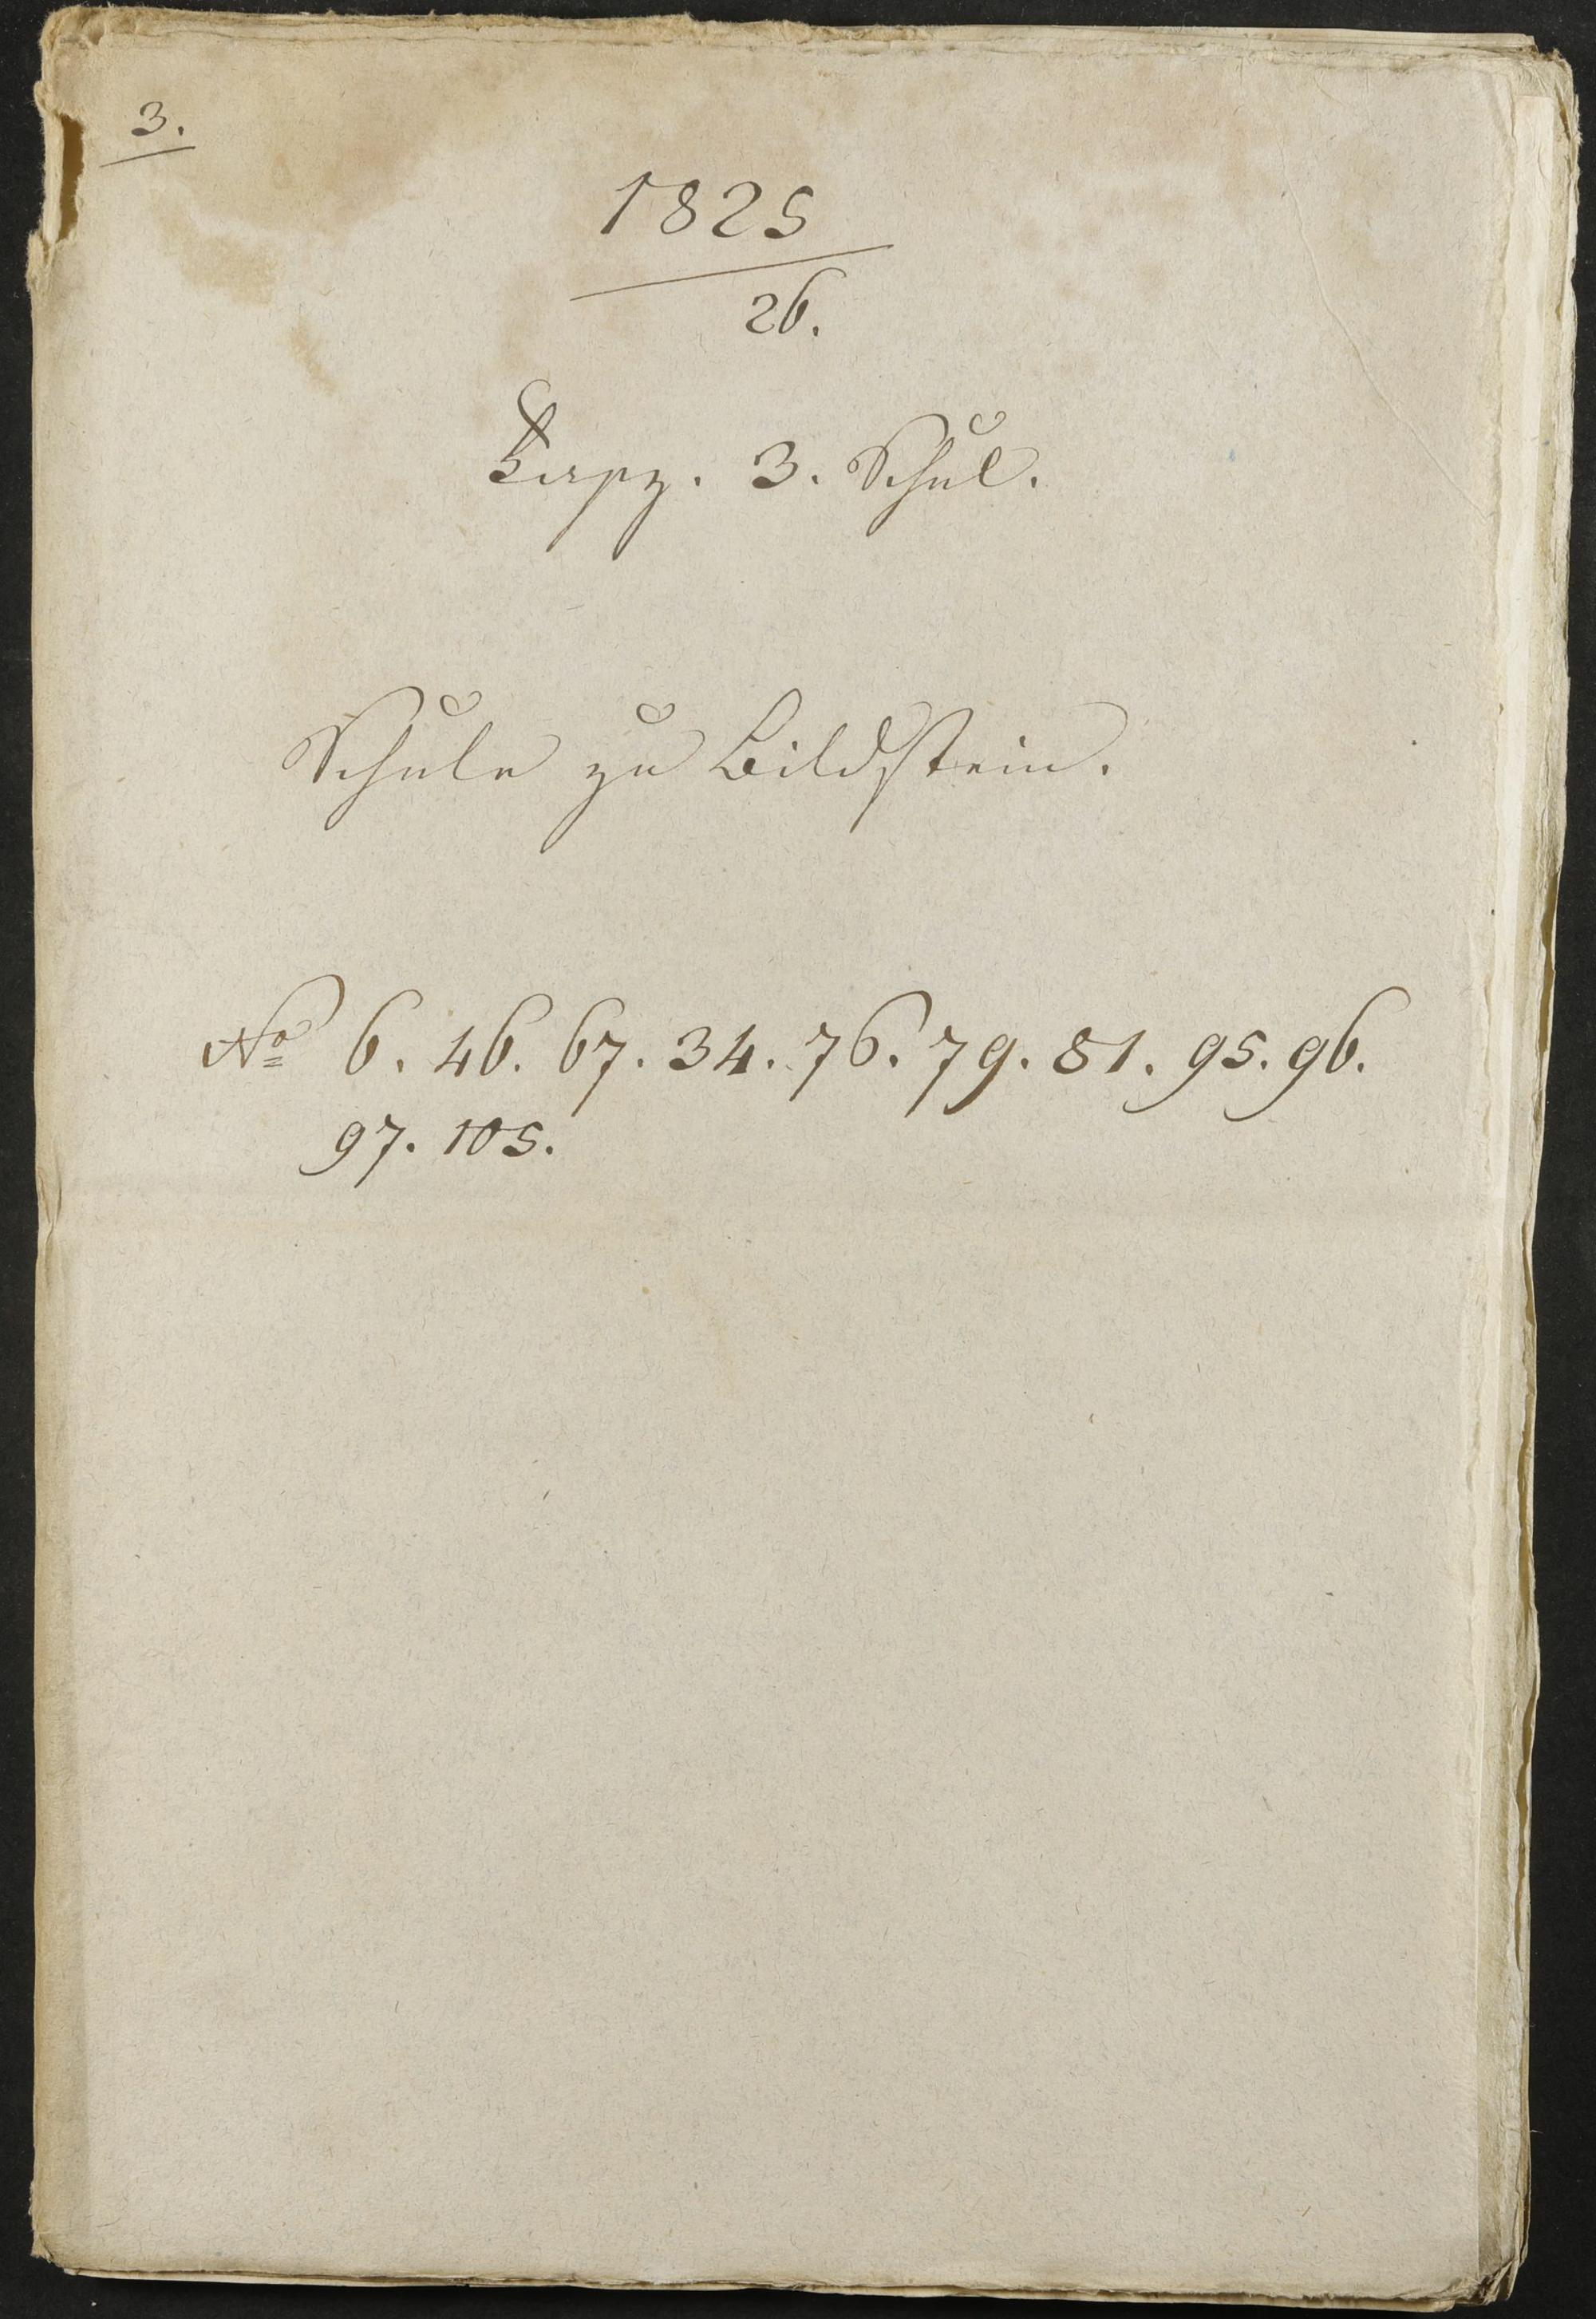 3.
1825
26.
Faszz. 3. Schul.
Schule zu Bildstein.
No 6. 46. 67. 34. 76. 79. 81. 95. 96.
97. 105.